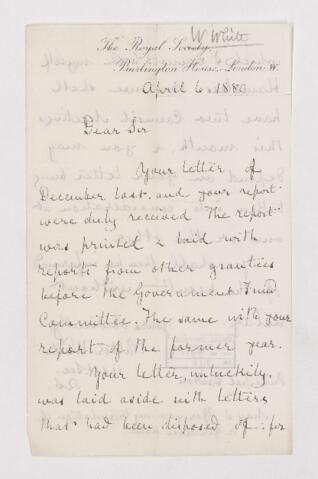 W White
The Royal Society
Burlington House, London W.
April 6 1880
Dear Sir
Your letter of
December last, and your report
were duly received The report
was printed & laid with
reports from other grantees
before the Government Fund
Committee. The same with your
report of the former year.
Your letter, unluckily,
was laid aside with letters
that had been disposed of: for